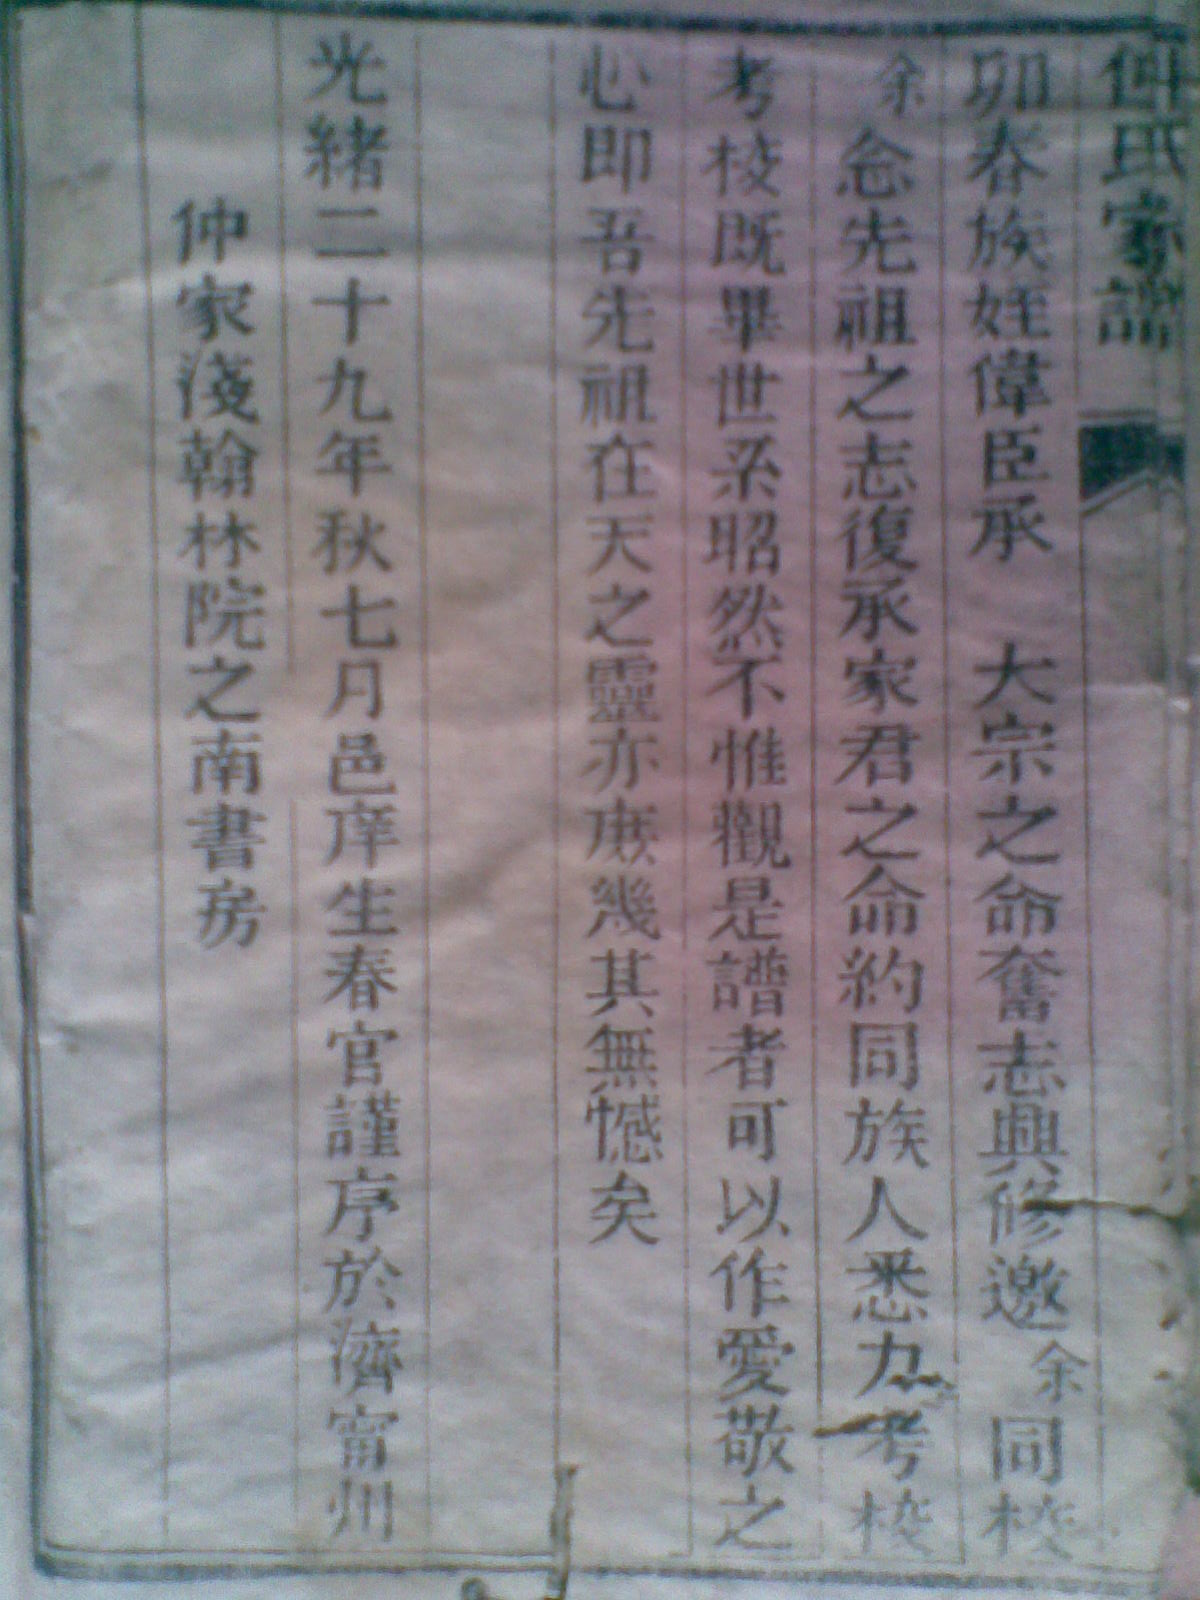 仲氏家譜
卯春族姪偉臣承　大宗之命奮志興修邀余同校
余念先祖之志復承家君之命約同族人悉力考校
考校既畢世系昭然不惟觀是譜者可以作愛敬之
心即吾先祖在天之靈亦庶幾其無憾矣
光緒二十九年秋七月邑庠生春官謹序於濟甯州
仲家淺翰林院之南書房